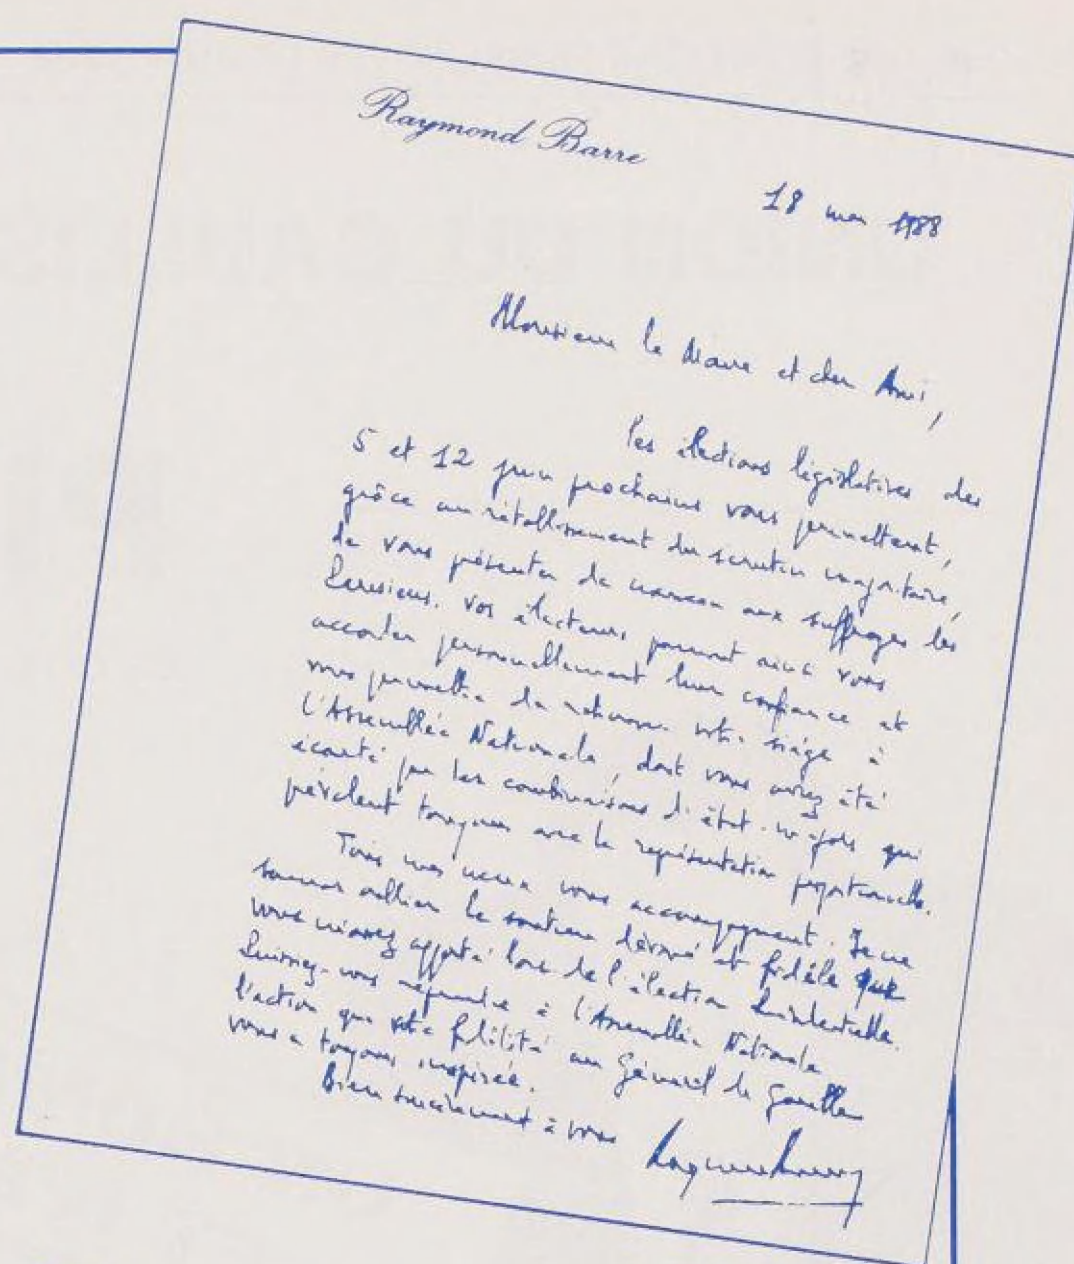 Raymond Barre
18 mai 1988
Monsieur le Maire et cher Ami,
Les élections législatives des
5 et 12 juin prochains vous permettent,
grâce au rétablissement du scrutin majoritaire,
de vous présenter de nouveau aux suffrages des
Parisiens. Vos électeurs pourront ainsi vous
accorder personnellement leur confiance et
vous permettre de retrouver votre siège à
l'Assemblée Nationale, dont vous aviez été
écarté par les combinaisons d'état-majors qui
prévalent toujours avec la représentation proportionnelle.
Tous mes vœux vous accompagnent. Je ne
saurais oublier le soutien dévoué et fidèle que
vous m'avez apporté lors de l'élection Présidentielle.
Puissiez-vous reprendre à l'Assemblée Nationale
l'action que votre fidélité au Général de Gaulle
vous a toujours inspirée.
Bien sincèrement à vous